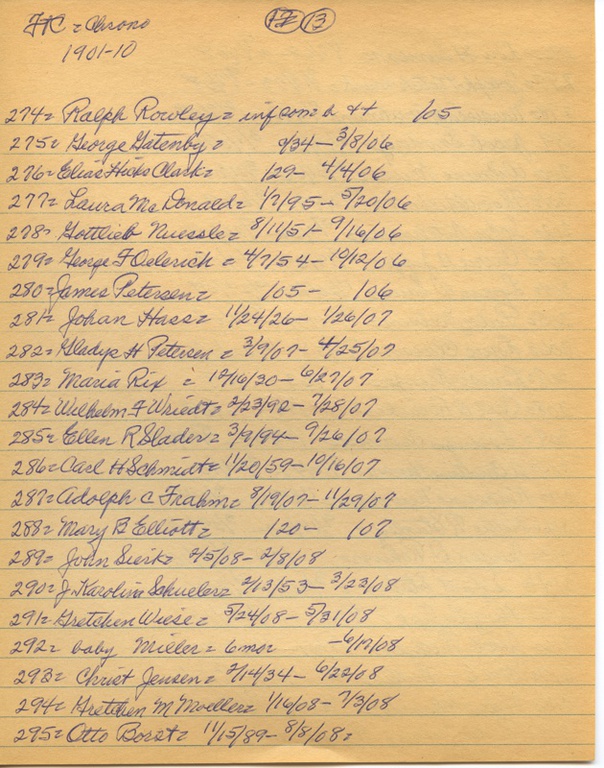 FC = Chrono 12 13
1901-10
274= Ralph Rowley = inf son & /05
275= George Gatenby = /34 - 3/8/06
276= Elias Hicks Clark = /29 - 4/4/06
277= Laura McDonald = 1/7/95 - 5/20/06
278= Gottlieb Nuessle = 8/11/51 - 9/16/06
279= George F Oelerich = 4/7/54 - 10/12/06
280= James Petersen = /05 - /06
281= Johan Hass = 11/24/26 - 1/26/07
282= Gladys H Petersen = 3/9/07 - 4/25/07
283= Maria Rix = 12/16/30 - 6/27/07
284= Wilhelm F Wriedt = 2/23/92 - 7/28/07
285= Ellen R Slader = 3/9/94 - 9/26/07
286= Carl H Schmidt = 11/20/59 - 10/16/07
287= Adolph C Frahm = 8/19/07 - 11/29/07
288= Mary B Elliott = /20 - /07
289= John Sierk = 2/5/08 - 2/8/08
290= J. Karoline Schueler = 2/13/53 - 3/23/08
291= Gretchen Wiese = 5/24/08 - 5/31/08
292= baby Miller = 6 mo = -6/17/08
293= Christ Jensen = 2/14/34 - 6/22/08
294= Gretchen M Moeller = 1/16/08 - 7/3/08
295= Otto Borst = 11/15/89 - 8/8/08 =